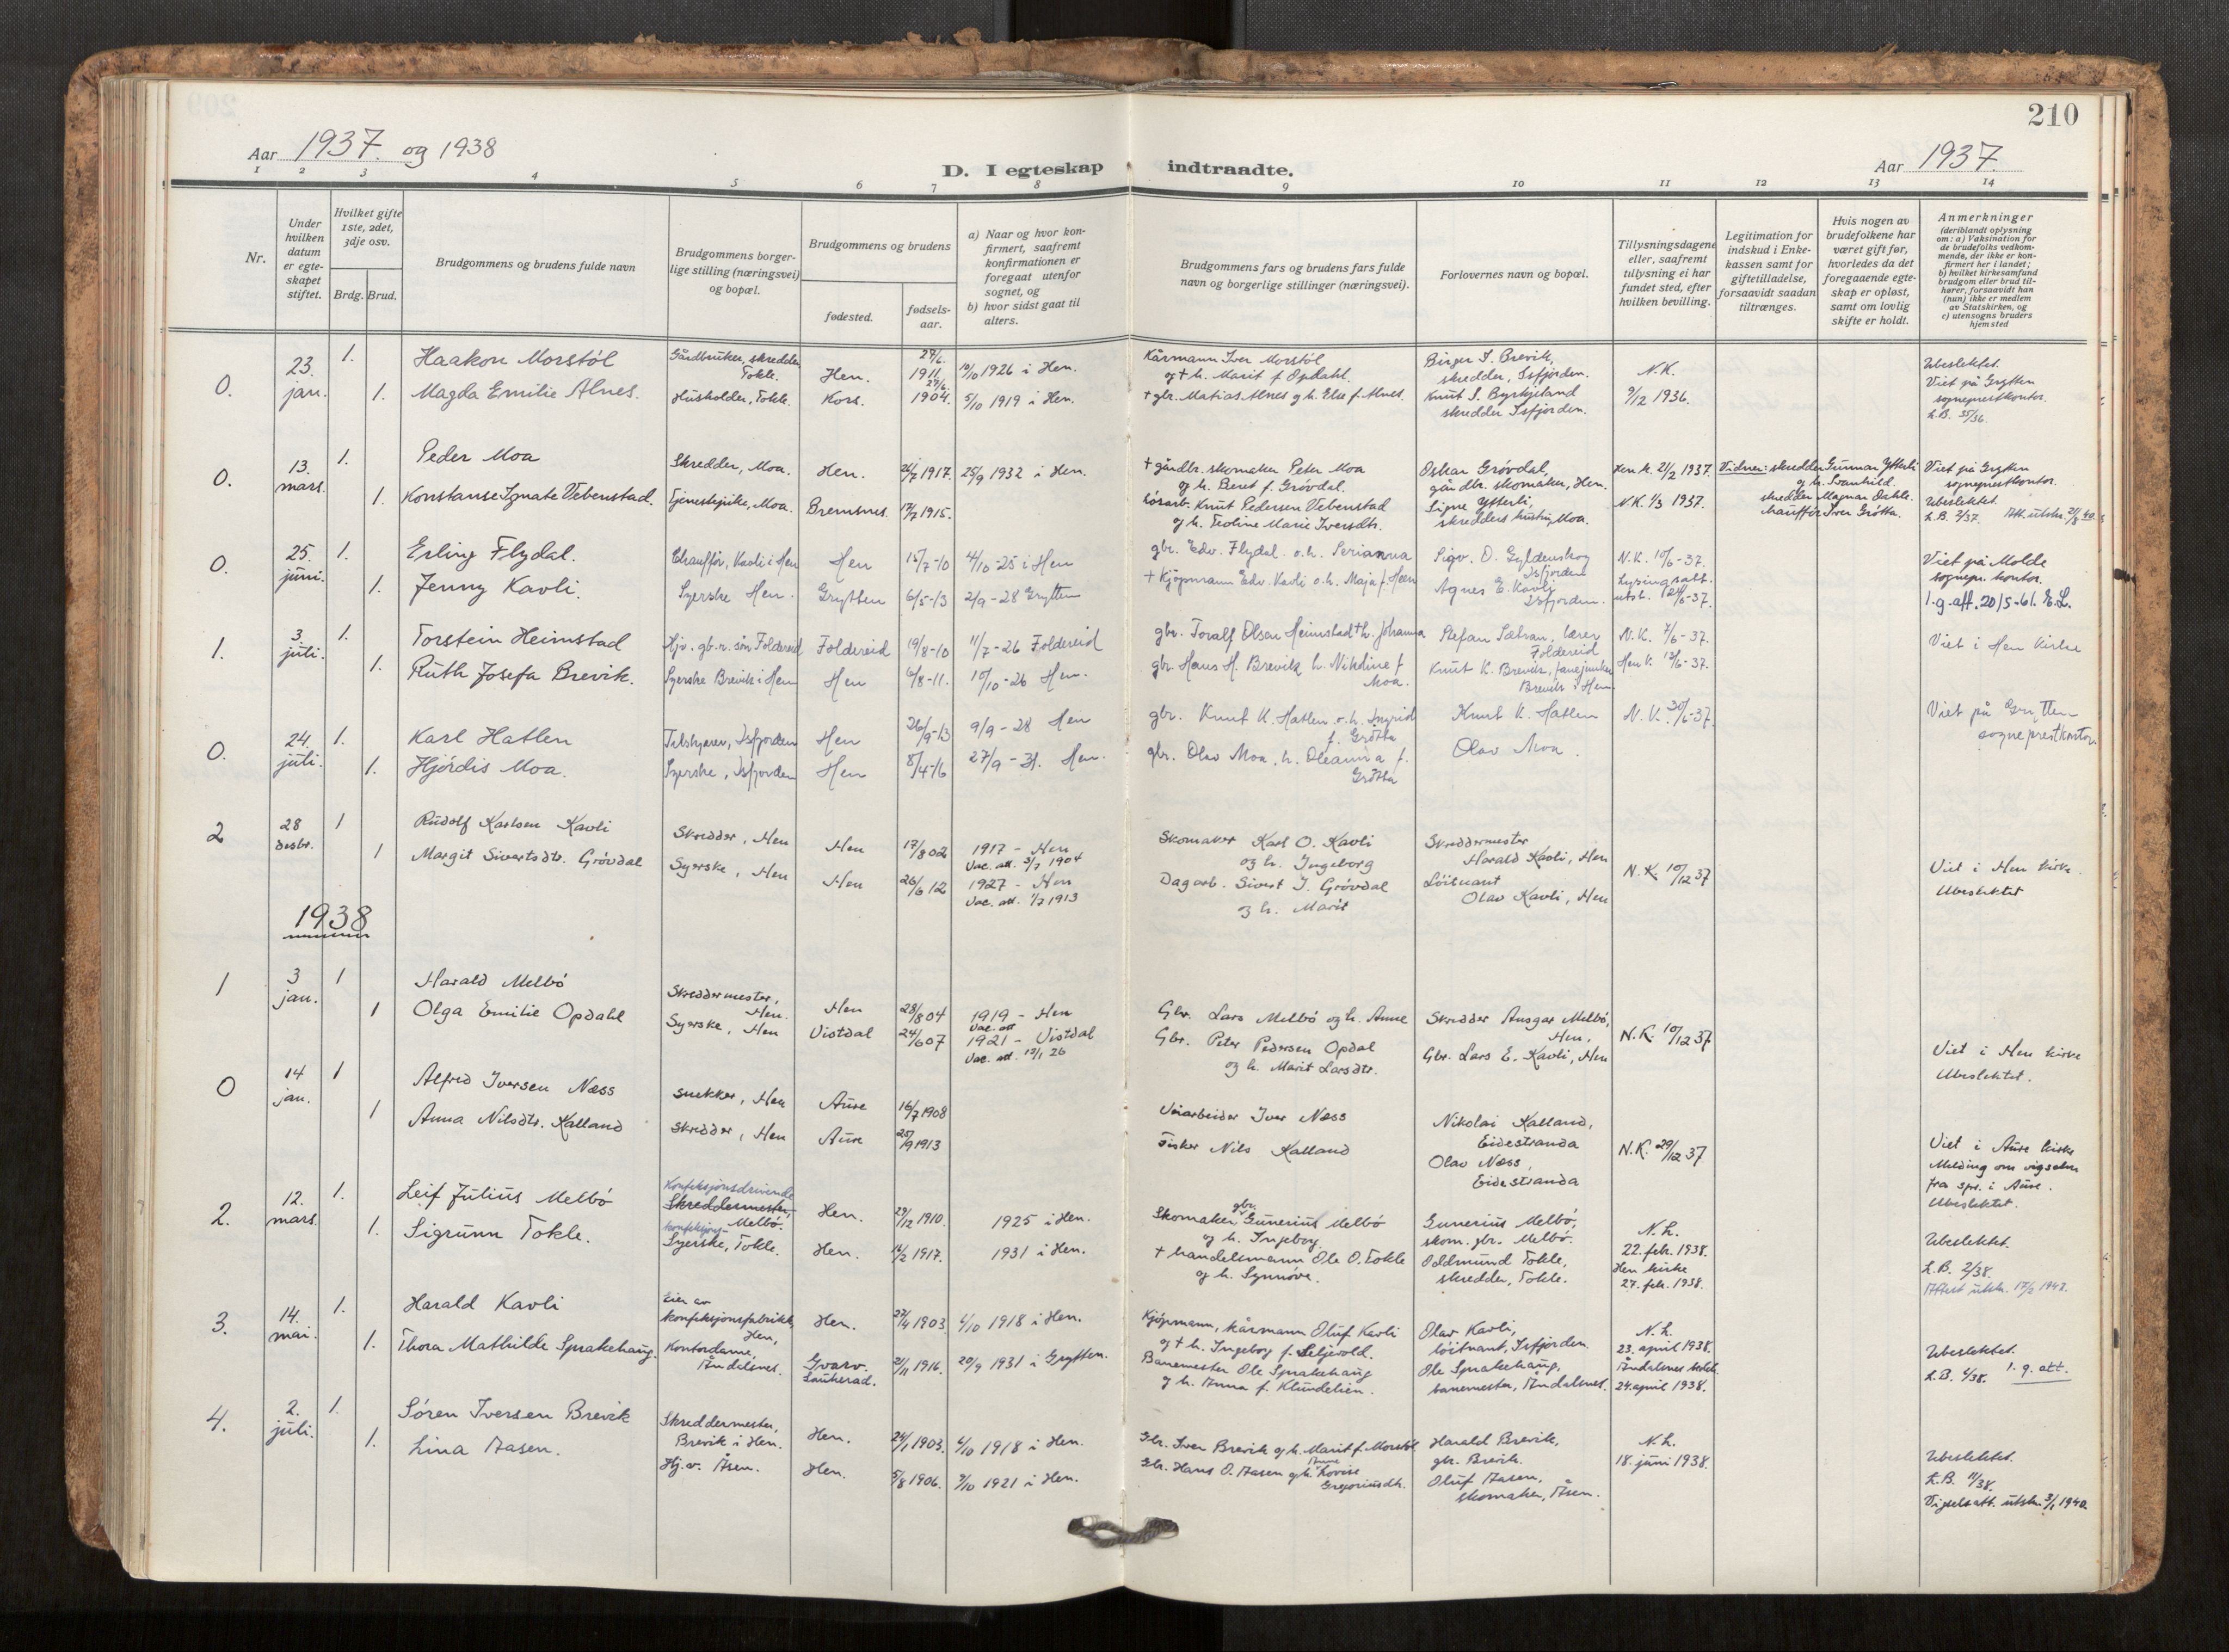 210
Aar 1937. og 1938
D. I egteskap indtraadte.
Aar 1937.
1 2 3 4 5 6 7 8 9 10 11 12 13 14
Nr.
Under hvilken datum er egteskapet stiftet.
Hvilket gifte 1ste, 2det, 3dje osv.
Brdg. Brud.
Brudgommens og brudens fulde navn
Brudgommens borgerlige stilling (næringsvei) og bopæl.
Brudgommens og brudens
fødested.
fødselsaar.
a) Naar og hvor konfirmert, saafremt konfirmationen er foregaat utenfor sognet, og
b) hvor sidst gaat til alters.
Brudgommens fars og brudens fars fulde navn og borgerlige stillinger (næringsvei).
Forlovernes navn og bopæl.
Tillysningsdagene eller, saafremt tillysning ei har fundet sted, efter hvilken bevilling.
Legitimation for indskud i Enkekassen samt for giftetilladelse, forsaavidt saadan tiltrænges.
Hvis nogen av brudefolkene har været gift før, hvorledes da det foregaaende egteskap er opløst, samt om lovlig skifte er holdt.
Anmerkninger (deriblandt oplysning om: a) Vaksination for de brudefolks vedkommende, der ikke er konfirmert her i landet; b) hvilket kirkesamfund brudgom eller brud tilhører, forsaavidt han (hun) ikke er medlem av Statskirken, og c) utensogns bruders hjemsted
0. 23. jan. 1. Haakon Morstøl Gårdbruker, skredder Tokle. Hen. 1911 10/10 1926 i Hen. Kårmann Iver Morstøl og + h. Marit f. Opdahl. Birger I. Brevik, skredder, Isfjorden. N.K. Ubeslektet. Viet på Grytten sogneprestkontor.
1. Magda Emilie Alnes. Husholder, Tokle. Kors. 1904. 5/10 1919 i Hen. + gbr. Matias Alnes og h. Else f. Alnes. Knut S. Byrkjeland skredder Isfjorden. 9/12 1936. L.B. 35/36.
0. 13. mars. 1. Peder Moa Skredder, Moa. Hen. 24/7 1917. 25/9 1932 i Hen. + gårdbr. skomaker Peter Moa og h. Beret f. Grøvdal. Oskar Grøvdal, gårdbr. skomaker, Hen. Hen k. 21/2 1937. Vidner: skredder Gunnar Ytterli og h. Svanhild. Viet på Grytten sogneprestkontor.
1. Konstanse Ignate Vebenstad. Tjenestepike, Moa. Bremsnes. 17/7 1915. Knut Pedersen Vebenstad og h. Marie Iversdtr. Signe Ytterli, skredders hustru, Moa. N.K. 1/3 1937. skredder Magnar Dahle. Chauffør Iver Grøtta. Ubeslektet. L.B. 2/37.
0. 25. juni. 1. Erling Flydal. Chauffør, Kavli i Hen Hen 15/7-10 4/10-25 i Hen gbr. Edv. Flydal o.h. Serianna Sigv. O. Gyldenskog Isfjorden N.K. 10/6-37. Viet på Molde sognepr. kontor.
1. Jenny Kavli. Syerske Hen. Grytten 6/5-13 2/9-28 Grytten + Kjøpmann Edv. Kavli o.h. Maja f. Hen Agnes E. Kavli Isfjorden. Lysingsatt. utst. 24/6-37. 1.g.att. 20/5-61. E.L.
1. 3. juli. 1. Torstein Heimstad Hjv. gb.r. søn Foldereid Foldereid 19/8-10 11/7-26 Foldereid gbr. Toralf Olsen Heimstad + h. Johanna Stefan Sætran, lærer Foldereid N.K. 7/6-37. Viet i Hen kirke
1. Ruth Josefa Brevik. Syerske Brevik i Hen Hen 6/8-11. 10/10-26 Hen. gbr. Hans H. Brevik h. Nikoline f Moa. Knut K. Brevik, fanejunker Brevik i Hen. Hen k. 13/6-37.
0. 24. juli. 1. Karl Hatlen Tilskjærer, Isfjorden Hen 26/9-13 9/9-28 Hen gbr. Knut K. Hatlen o.h. Ingrid f. Grøtta Knut K. Hatlen N.K. 30/6-37. Viet på Grytten sogneprestkontor.
1. Hjørdis Moa. Syerske, Isfjorden Hen 8/4-16 27/9-31. Hen. gbr. Olav Moa, h. Oleanna f. Grøtta Olav Moa.
2 28 desbr. 1 Rudolf Karlsen Kavli Skredder, Hen Hen 17/8 02 1917 - Hen Vac. att. 3/7 1904 Skomaker Karl O. Kavli og h. Ingeborg Skreddermester Harald Kavli, Hen N.K. 10/12 37 Viet i Hen kirke. Ubeslektet
1 Margit Sivertsdtr. Grøvdal Syerske, Hen Hen 26/6 12 1927 - Hen Vac. att. 1/7 1913 Dagarb. Sivert J. Grøvdal og h. Marit Løitnant Olav Kavli, Hen
1938
1 3 jan. 1 Harald Melbø Skreddermester, Hen. Hen 28/8 04 1919 - Hen Vac. att Gbr. Lars Melbø og h. Anne Skredder Ansgar Melbø, Hen. N.K. 10/12 37 Viet i Hen kirke Ubeslektet.
1 Olga Emilie Opdahl Syerske, Hen Vistdal 24/6 07 1921 - Vistdal Vac. att. 15/1 26 Gbr. Peter Pedersen Opdal og h. Marit Larsdtr. Gbr. Lars E. Kavli, Hen
0 14 jan. 1 Alfred Iversen Næss snekker, Hen Aure 16/7 1908 Veiarbeider Iver Næss Nikolai Kalland, Eidestranda N.K. 29/12 37 Viet i Aure kirke Melding om vigselen fra spr. i Aure. Ubeslektet.
1 Anna Nilsdtr. Kalland Skredder, Hen Aure 25/9 1913 Fisker Nils Kalland Olav Næss, Eidestranda
2. 12. mars. 1. Leif Julius Melbø Konfeksjonsdrivende Skreddermester, Melbø. Hen. 29/12 1910. 1925 i Hen. Skomaker gbr. Gunerius Melbø og h. Ingeborg. Gunerius Melbø, skom. gbr. Melbø. N.L. 22. feb. 1938. Ubeslektet. L.B. 2/38.
1. Sigrunn Tokle. konfeksjons- Syerske, Tokle. Hen. 16/2 1917. 1931 i Hen. + handelsmann Ole O. Tokle og h. Synnøve. Oddmund Tokle, skredder, Tokle. Hen kirke 27. feb. 1938.
3. 14. mai. 1. Harald Kavli Eier av konfeksjonsfabrikk, Hen, Hen. 27/4 1903. 6/10 1918 i Hen. Kjøpmann, kårmann Oluf Kavli og + h. Ingeborg f. Seljevold. Olav Kavli, løitnant, Isfjorden. N.L. 23. april 1938. Ubeslektet. L.B. 4/38. 1. g. att.
1. Thora Mathilde Sprakehaug. Kontordame, Åndalsnes. Gvarv. Sauherad. 21/11 1916. 20/9 1931 i Grytten. Banemester Ole Sprakehaug og h. Anna f. Klundelien. Ole Sprakehaug, banemester, Åndalsnes. 24. april 1938.
4. 2. juli. 1. Søren Iversen Brevik Skreddermester, Brevik i Hen. Hen. 24/1 1903. 6/10 1918 i Hen. Gbr. Iver Brevik og h. Marit f. Morstøl. Harald Brevik, gbr. Brevik. N.L. 18. juni 1938. Ubeslektet. L.B. 11/38.
1. Lina Aasen. Hj.v. Åsen. Hen. 5/8 1906. 9/10 1921 i Hen. Gbr. Hans O. Aasen og h. Anne Lovise Gregoriusdtr. Oluf Aasen, skomaker, Åsen. Vigselsatt. utstr. 3/1 1940.